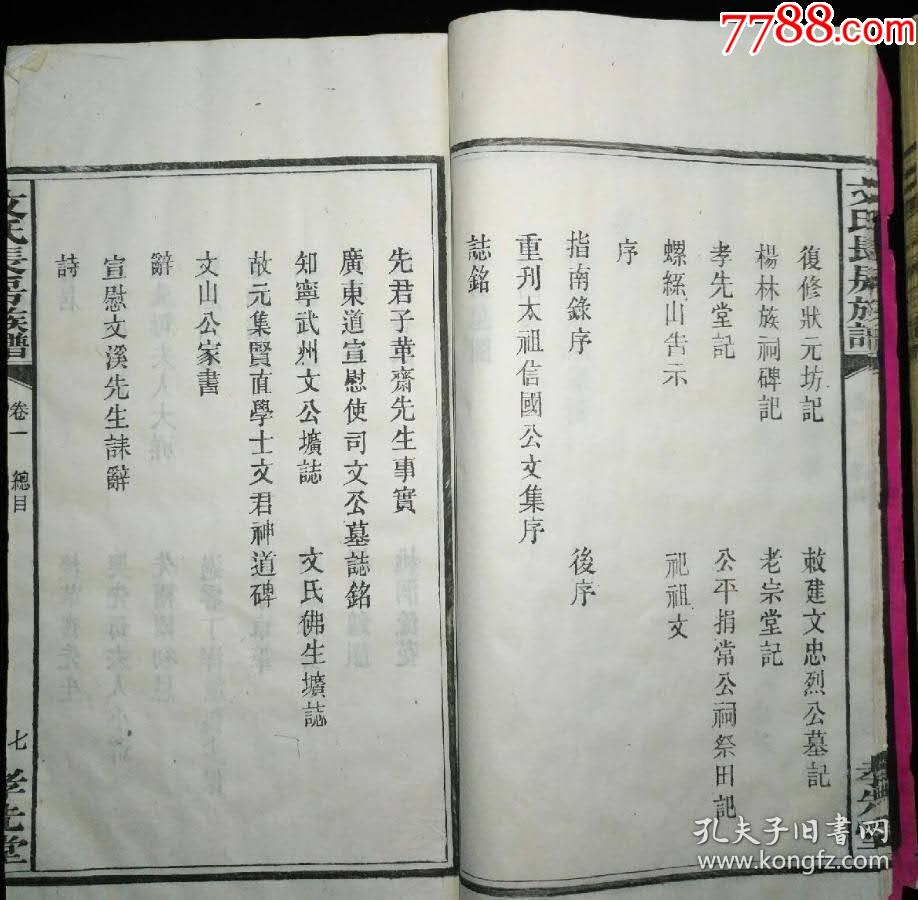 7788.com
文氏長房族譜
孝先堂
復修狀元坊記 敕建文忠烈公墓記
楊林族祠碑記 老宗堂記
孝先堂記 公平捐常公祠祭田記
螺絲山告示 祀祖文
序
指南錄序 後序
重刊太祖信國公文集序
誌銘
先君子革齋先生事實
廣東道宣慰使司文公墓誌銘
知寧武州文公壙誌 文氏佛生壙誌
故元集賢直學士文君神道碑
文山公家書
辭
宣慰文溪先生誄辭
詩
文氏長房族譜 卷一 總目 七 孝先堂
孔夫子旧书网
www.kongfz.com